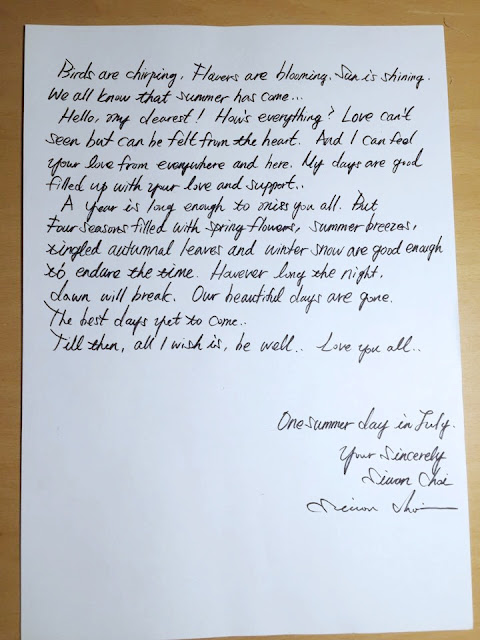 Birds are chirping. Flowers are blooming. Sun is shining.
We all know that summer has come...
Hello, my dearest! How's everything? Love can't
seen but can be felt from the heart. And I can feel
your love from everywhere and here. My days are good
filled up with your love and support..
A year is long enough to miss you all. But
four seasons filled with spring flowers, summer breezes,
tingled autumnal leaves and winter snow are good enough
to endure the time. However long the night,
dawn will break. Our beautiful days are gone.
The best days yet to come..
Till then, all I wish is, be well.. Love you all..
One summer day in July.
Your Sincerely
Siwon Choi
Siwon Choi